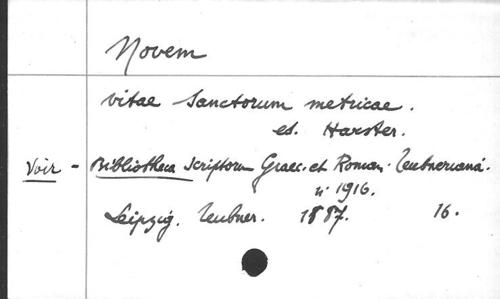 Novem
vitae Sanctorum metricae.
ed. Harster.
Voir - Bibliotheca Scriptorum Graec. et Roman. Teubneriana.
n° 1916.
Leipzig. Teubner. 1887. 16.